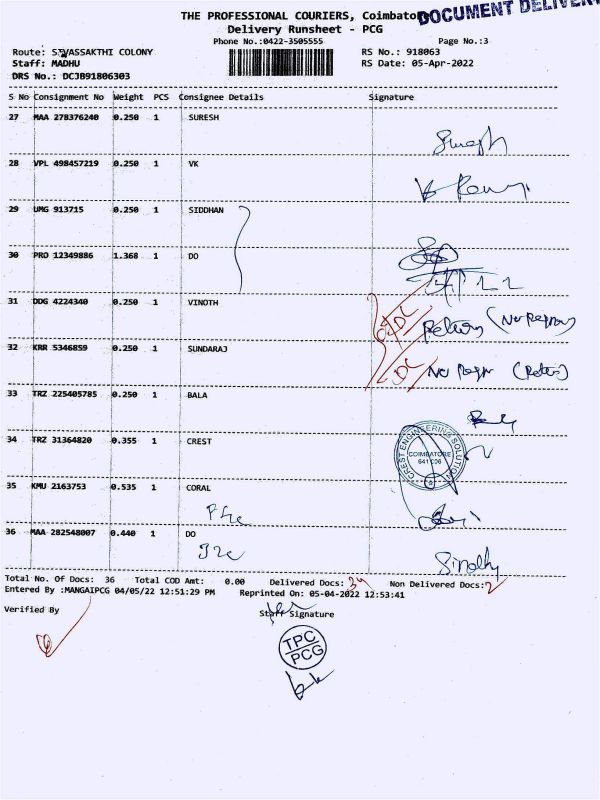 THE PROFESSIONAL COURIERS, Coimbator
DOCUMENT DELIVERY
Delivery Runsheet - PCG
Phone No.:0422-3505555
Page No.:3
Route: SIVASSAKTHI COLONY
RS No.: 918063
Staff: MADHU
RS Date: 05-Apr-2022
DRS No.: DCJB91806303
S No Consignment No Weight PCS Consignee Details Signature
27 MAA 278376240 0.250 1 SURESH
Suresh
28 VPL 498457219 0.250 1 VK
29 UMG 913715 0.250 1 SIDDHAN
30 PRO 12349886 1.368 1 DO
31 DDG 4224340 0.250 1 VINOTH
DC
Return
32 KRR 5346859 0.250 1 SUNDARAJ
DC
No (Return)
33 TRZ 225405785 0.250 1 BALA
34 TRZ 31364820 0.355 1 CREST
CREST ENGINEERING SOLUTION
COIMBATORE
641 006
35 KMU 2163753 0.535 1 CORAL
36 MAA 282548007 0.440 1 DO
Total No. Of Docs: 36 Total COD Amt: 0.00 Delivered Docs: 34 Non Delivered Docs: 2
Entered By :MANGAIPCG 04/05/22 12:51:29 PM Reprinted On: 05-04-2022 12:53:41
Verified By
Staff Signature
TPC
PCG